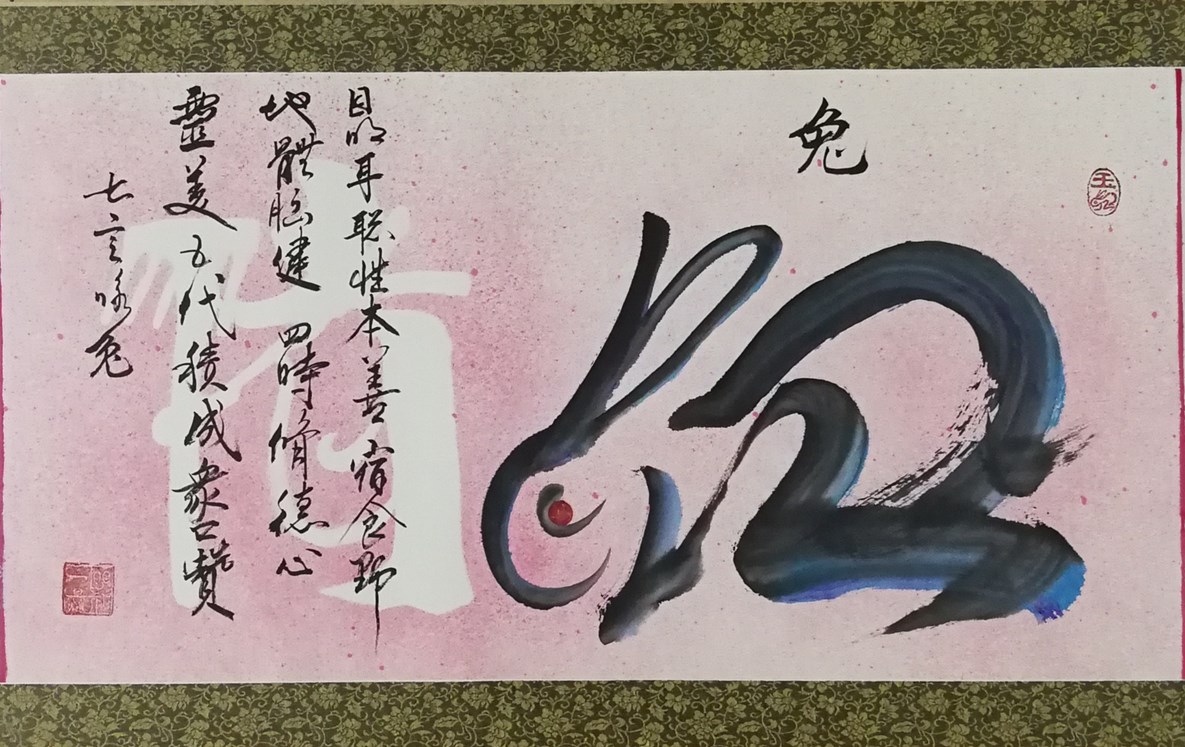 兔
目明耳聪性本善宿食野
地體腦健四時脩德心
靈美五代積成衆口贊
七言咏兔